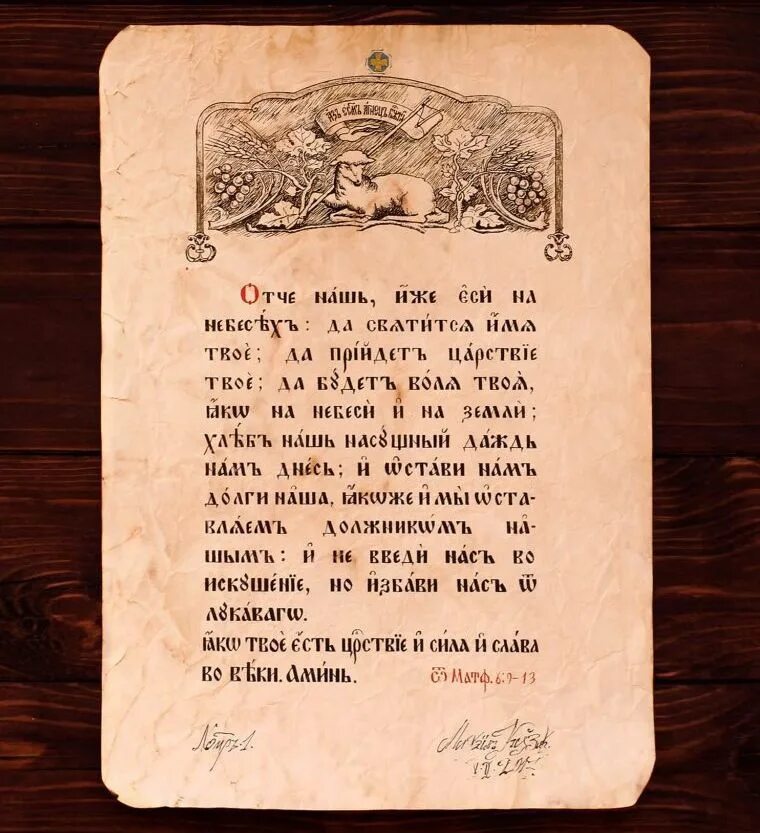 Азъ есмь агнецъ бжїй
Ѻтче на́шь, и҆́же є҆сѝ на
небесѣ́хъ: да свѧти́тсѧ и҆́мѧ
твоѐ; да прїи́детъ ца́рствїе
твоѐ; да бꙋ́детъ во́лѧ твоѧ̀,
ꙗ҆́кѡ на небесѝ и҆ на землѝ;
хлѣ́бъ на́шь насꙋ́щный да́ждь
на́мъ дне́сь; и҆ ѡ҆ста́ви на́мъ
до́лги на́ша, ꙗ҆́кѡже и҆ мы̀ ѡ҆ста-
влѧ́емъ должникѡ́мъ на́-
шымъ: и҆ не введѝ на́съ во
искꙋше́нїе, но и҆зба́ви на́съ ѿ
лꙋка́вагѡ.
ꙗ҆́кѡ твоѐ є҆́сть црⷭ҇твїе и҆ си́ла и҆ сла́ва
во вѣ́ки. Ами́нь.
ѿ Матѳ. 6:9-13